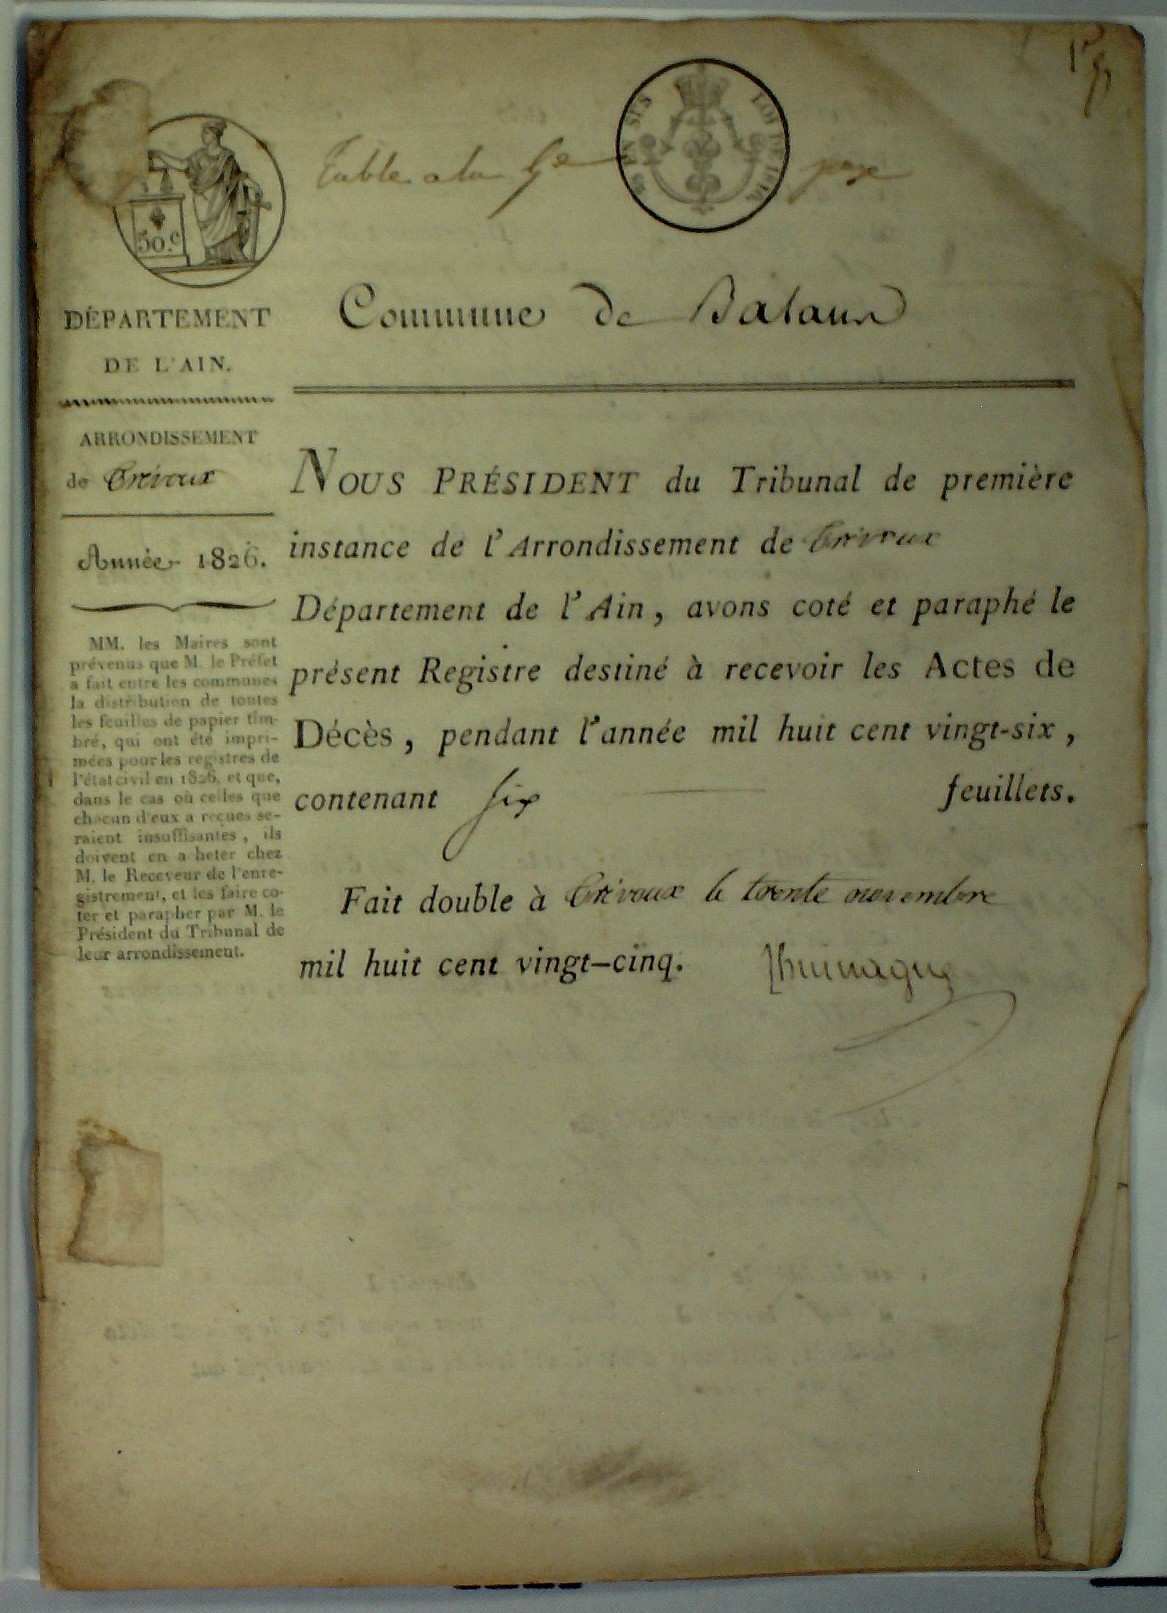 Table a la 5e page
EN SUS LOI DE 1816
50.c
DÉPARTEMENT
DE L'AIN.
Commune de Balaun
ARRONDISSEMENT
de Trévoux
Année 1826.
MM. les Maires sont
prévenus que M. le Préfet
a fait entre les communes
la distribution de toutes
les feuilles de papier tim-
bré, qui ont été impri-
mées pour les registres de
l'état civil en 1826, et que,
dans le cas où celles que
chacun d'eux a reçues se-
raient insuffisantes, ils
doivent en acheter chez
M. le Receveur de l'enre-
gistrement, et les faire co-
ter et parapher par M. le
Président du Tribunal de
leur arrondissement.
NOUS PRÉSIDENT du Tribunal de première
instance de l'Arrondissement de Trévoux
Département de l'Ain, avons coté et paraphé le
présent Registre destiné à recevoir les Actes de
Décès, pendant l'année mil huit cent vingt-six,
contenant six feuillets.
Fait double à Trévoux le trente novembre
mil huit cent vingt-cinq.